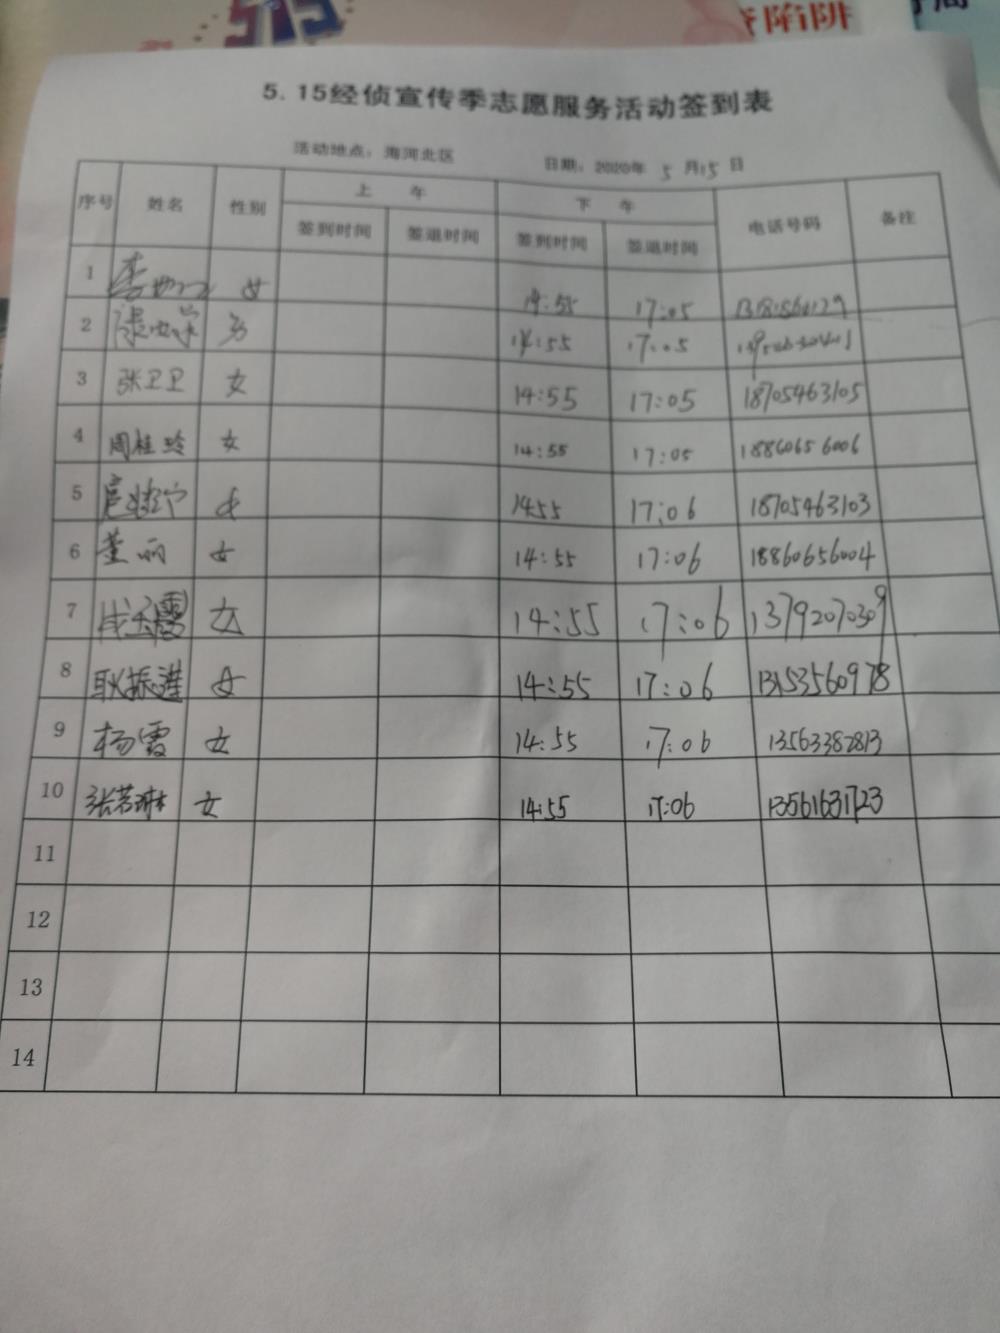 515
陷阱
5.15经侦宣传季志愿服务活动签到表
活动地点：海河北区 日期：2020年 5 月15 日
序号 姓名 性别 上 午 下 午 电话号码 备注
签到时间 签退时间 签到时间 签退时间
1 女 14:55 17:05
2 男 14:55 17:05
3 张卫卫 女 14:55 17:05 18705463105
4 周桂玲 女 14:55 17:05 18860656006
5 女 1455 17:06 18705463103
6 董丽 女 14:55 17:06 18860656004
7 成玉霞 女 14:55 17:06 13792070309
8 耿振港 女 14:55 17:06 13153560978
9 杨霞 女 14:55 17:06 13563382813
10 张若琳 女 14:55 17:06 13561631723
11
12
13
14